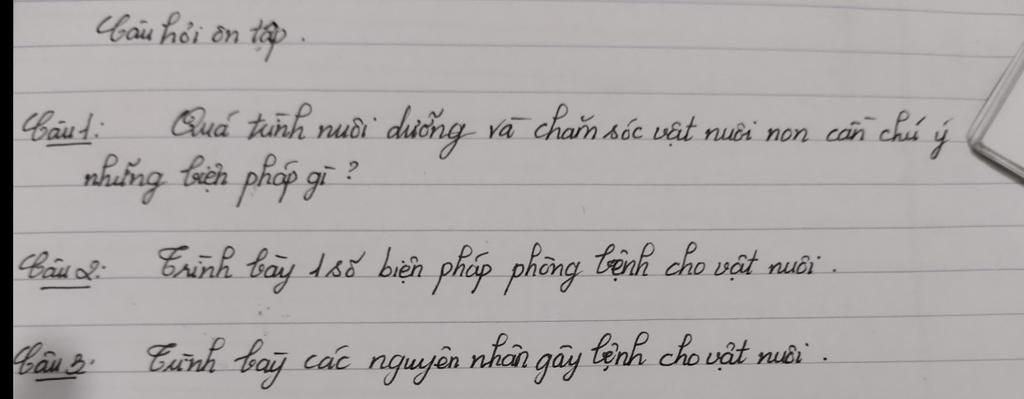 Câu hỏi ôn tập.
Câu 1: Quá trình nuôi dưỡng và chăm sóc vật nuôi non cần chú ý
những biện pháp gì?
Câu 2: Trình bày 1 số biện pháp phòng bệnh cho vật nuôi.
Câu 3: Trình bày các nguyên nhân gây bệnh cho vật nuôi.